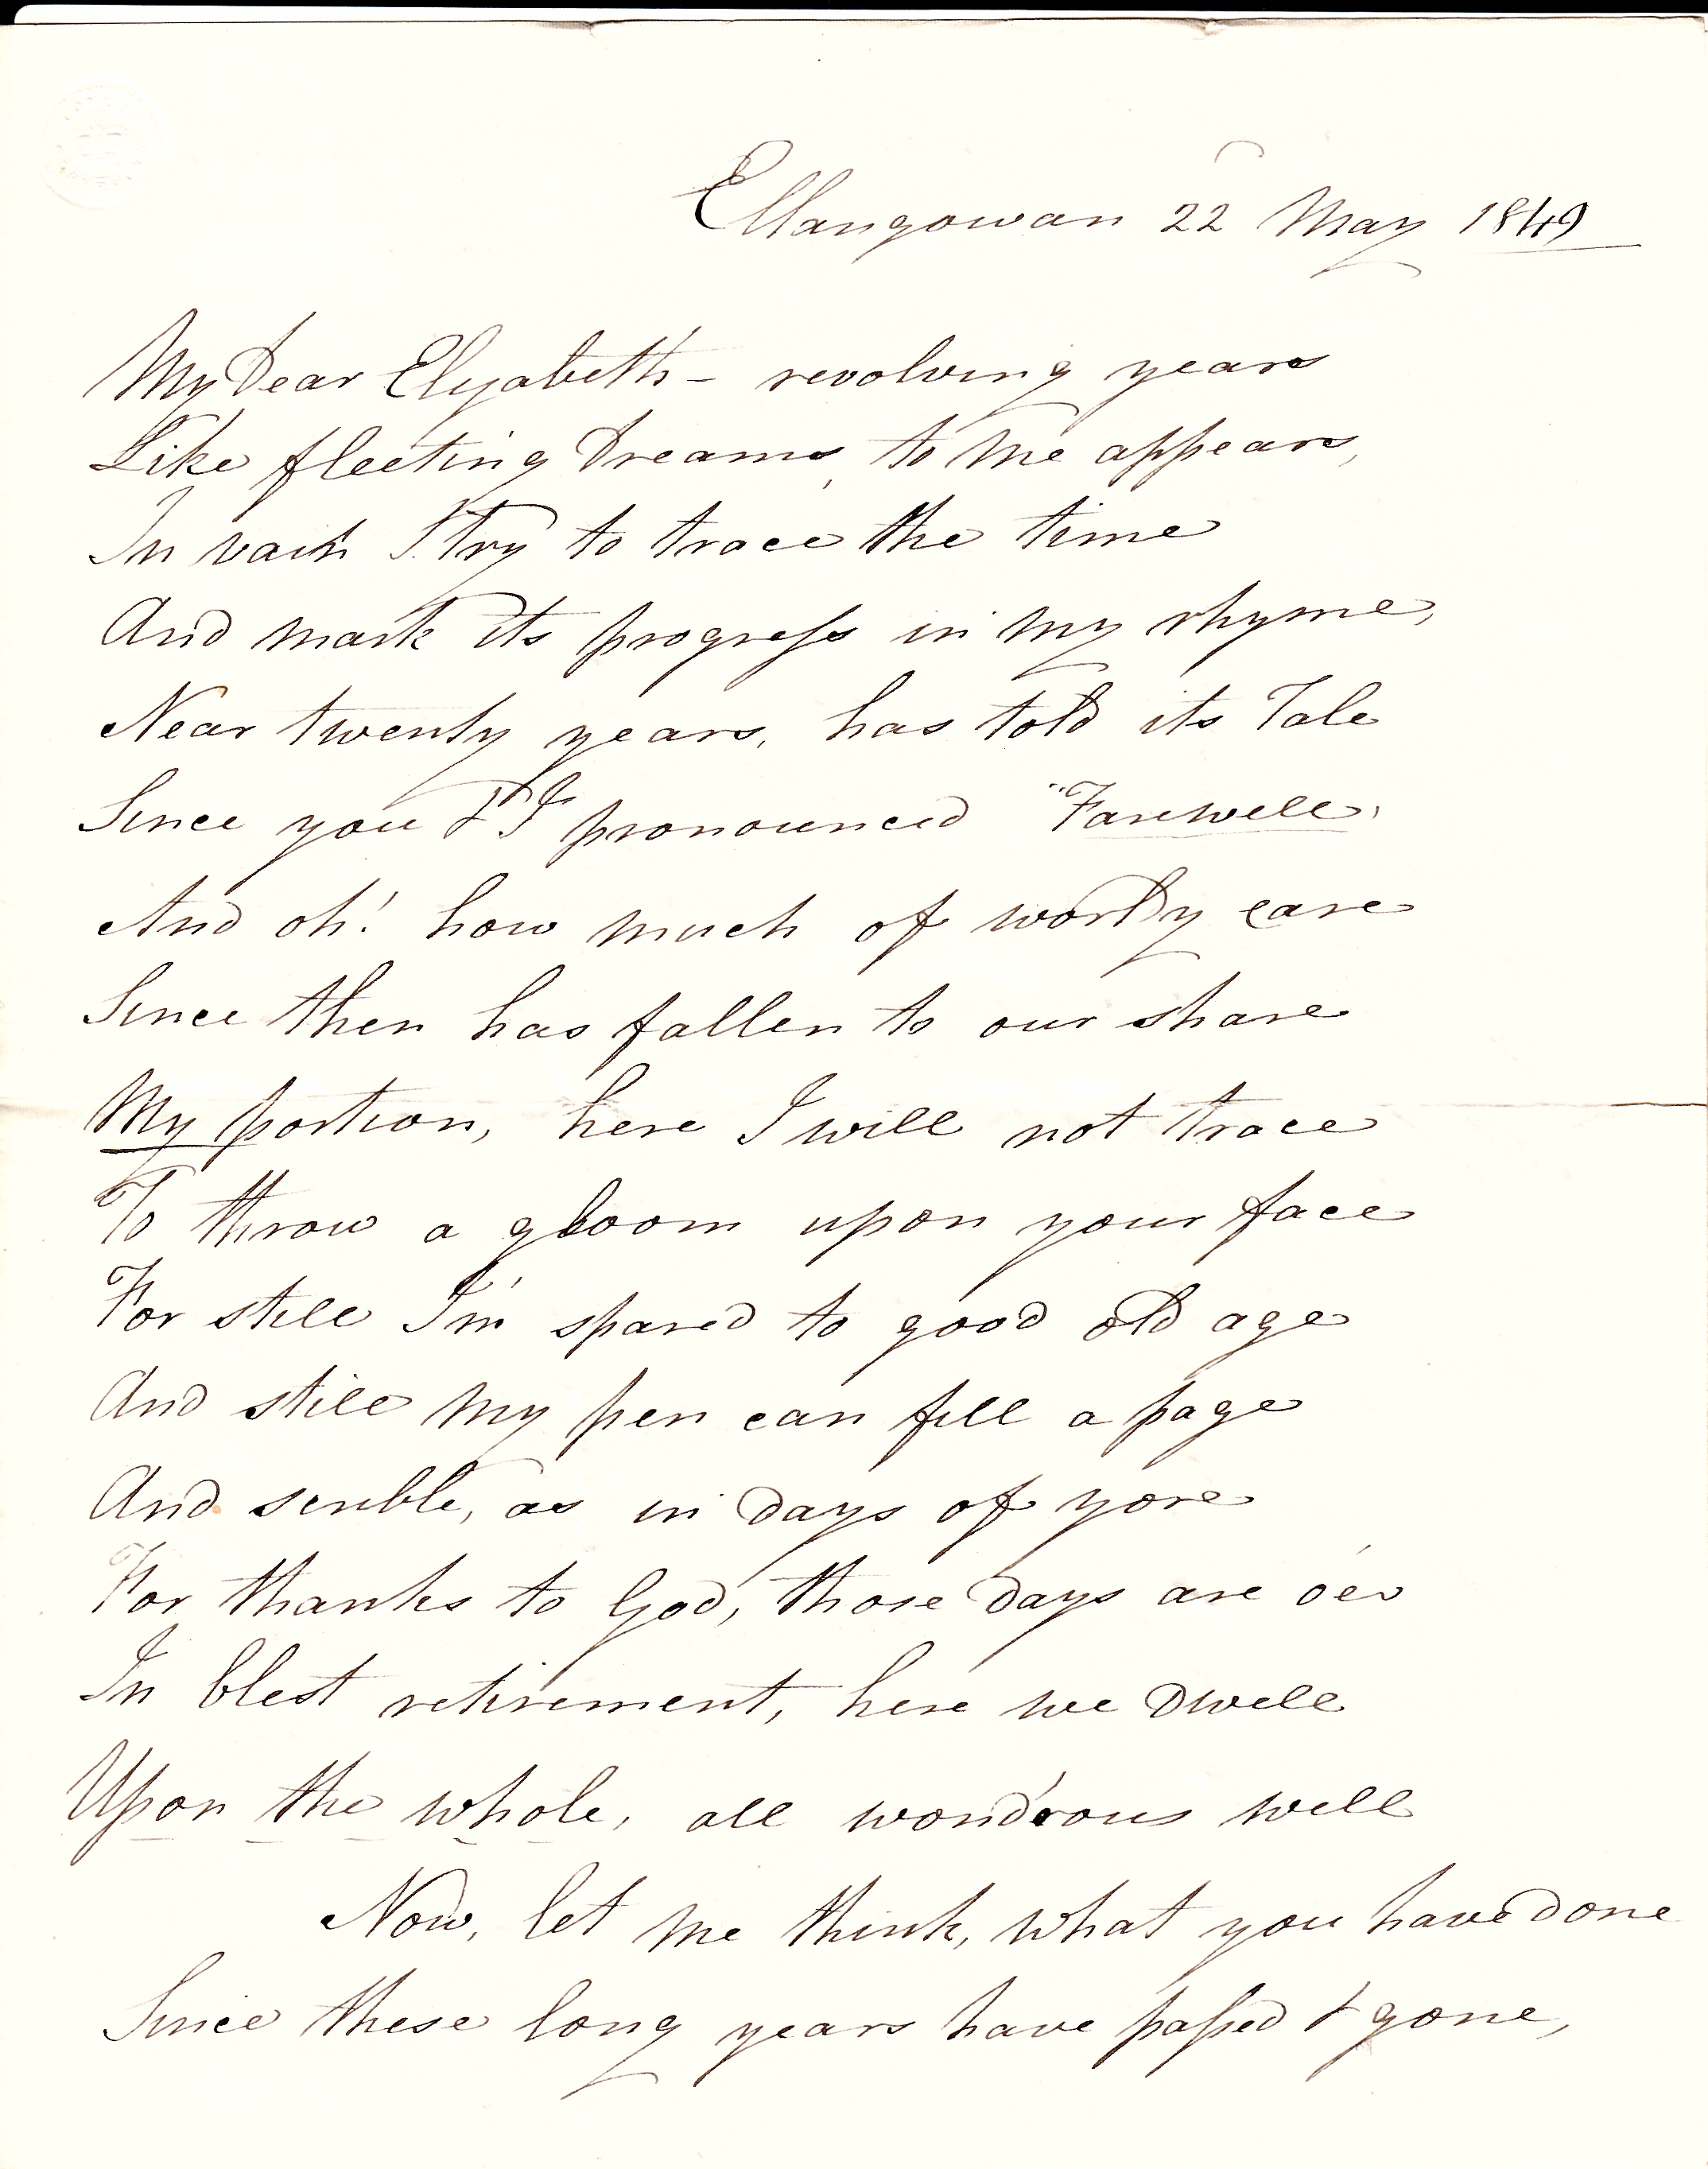 Ellangowan 22 May 1849
My Dear Elyabeth - revolving years
Like fleeting Dreams, to me appears,
In vain I try to trace the time
And mark its progress in my rhyme,
Near twenty years, has told its Tale
Since you & I pronounced "Farewell.
And oh! how much of worldy care
Since then has fallen to our share
My portion, here I will not trace
To throw a gloom upon your face
For still I'm spared to good old age
And still my pen can fill a page
And scrible, as in days of yore
For thanks to God, those days are o'er
In blest retirement, here we dwell
Upon the whole, all wond'rous well
Now, let me think, what you have done
Since these long years have passed & gone,